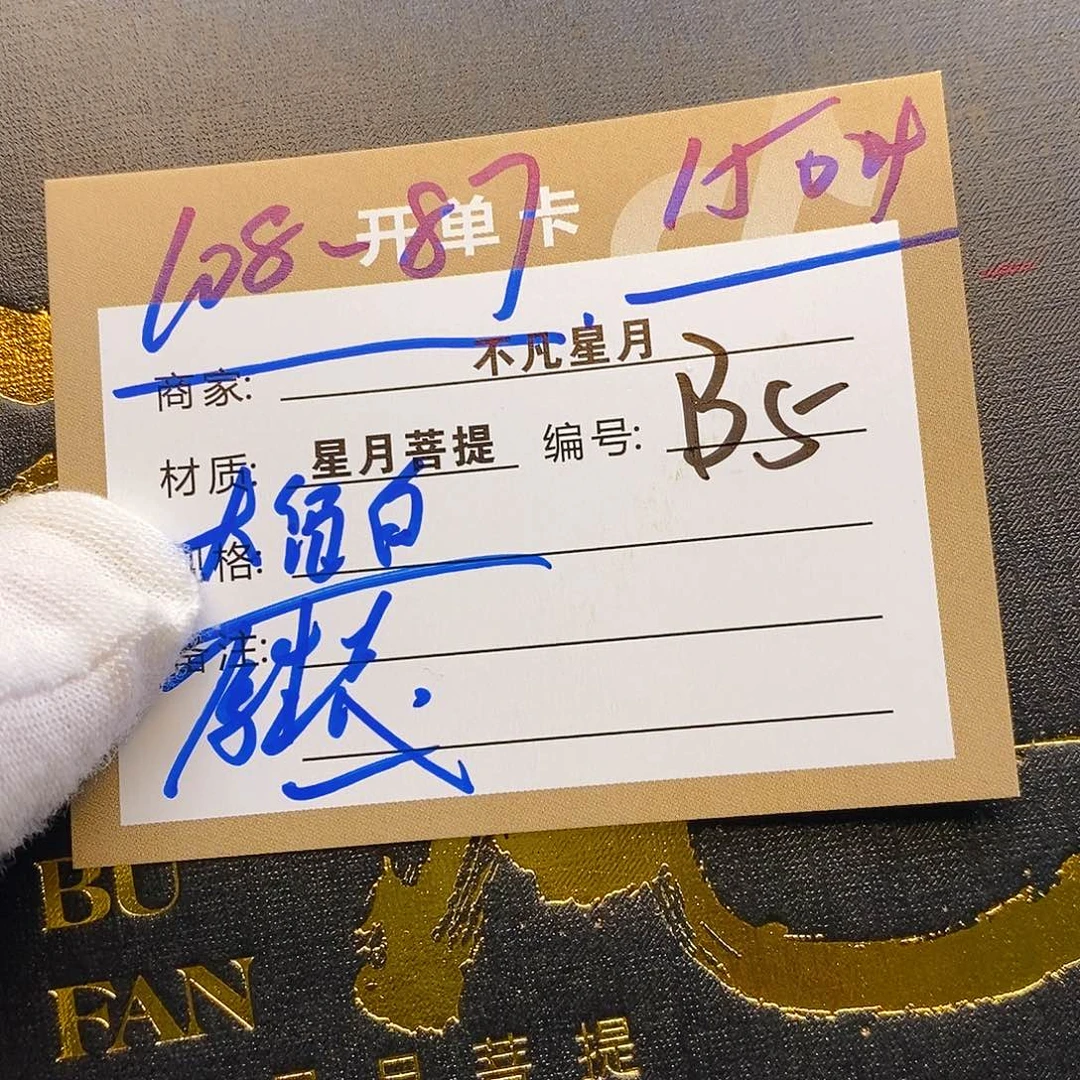 108-87 1504
开单卡
商家: 不凡星月
材质: 星月菩提 编号: B5
大留白
格:
备注:
BU
FAN
月菩提